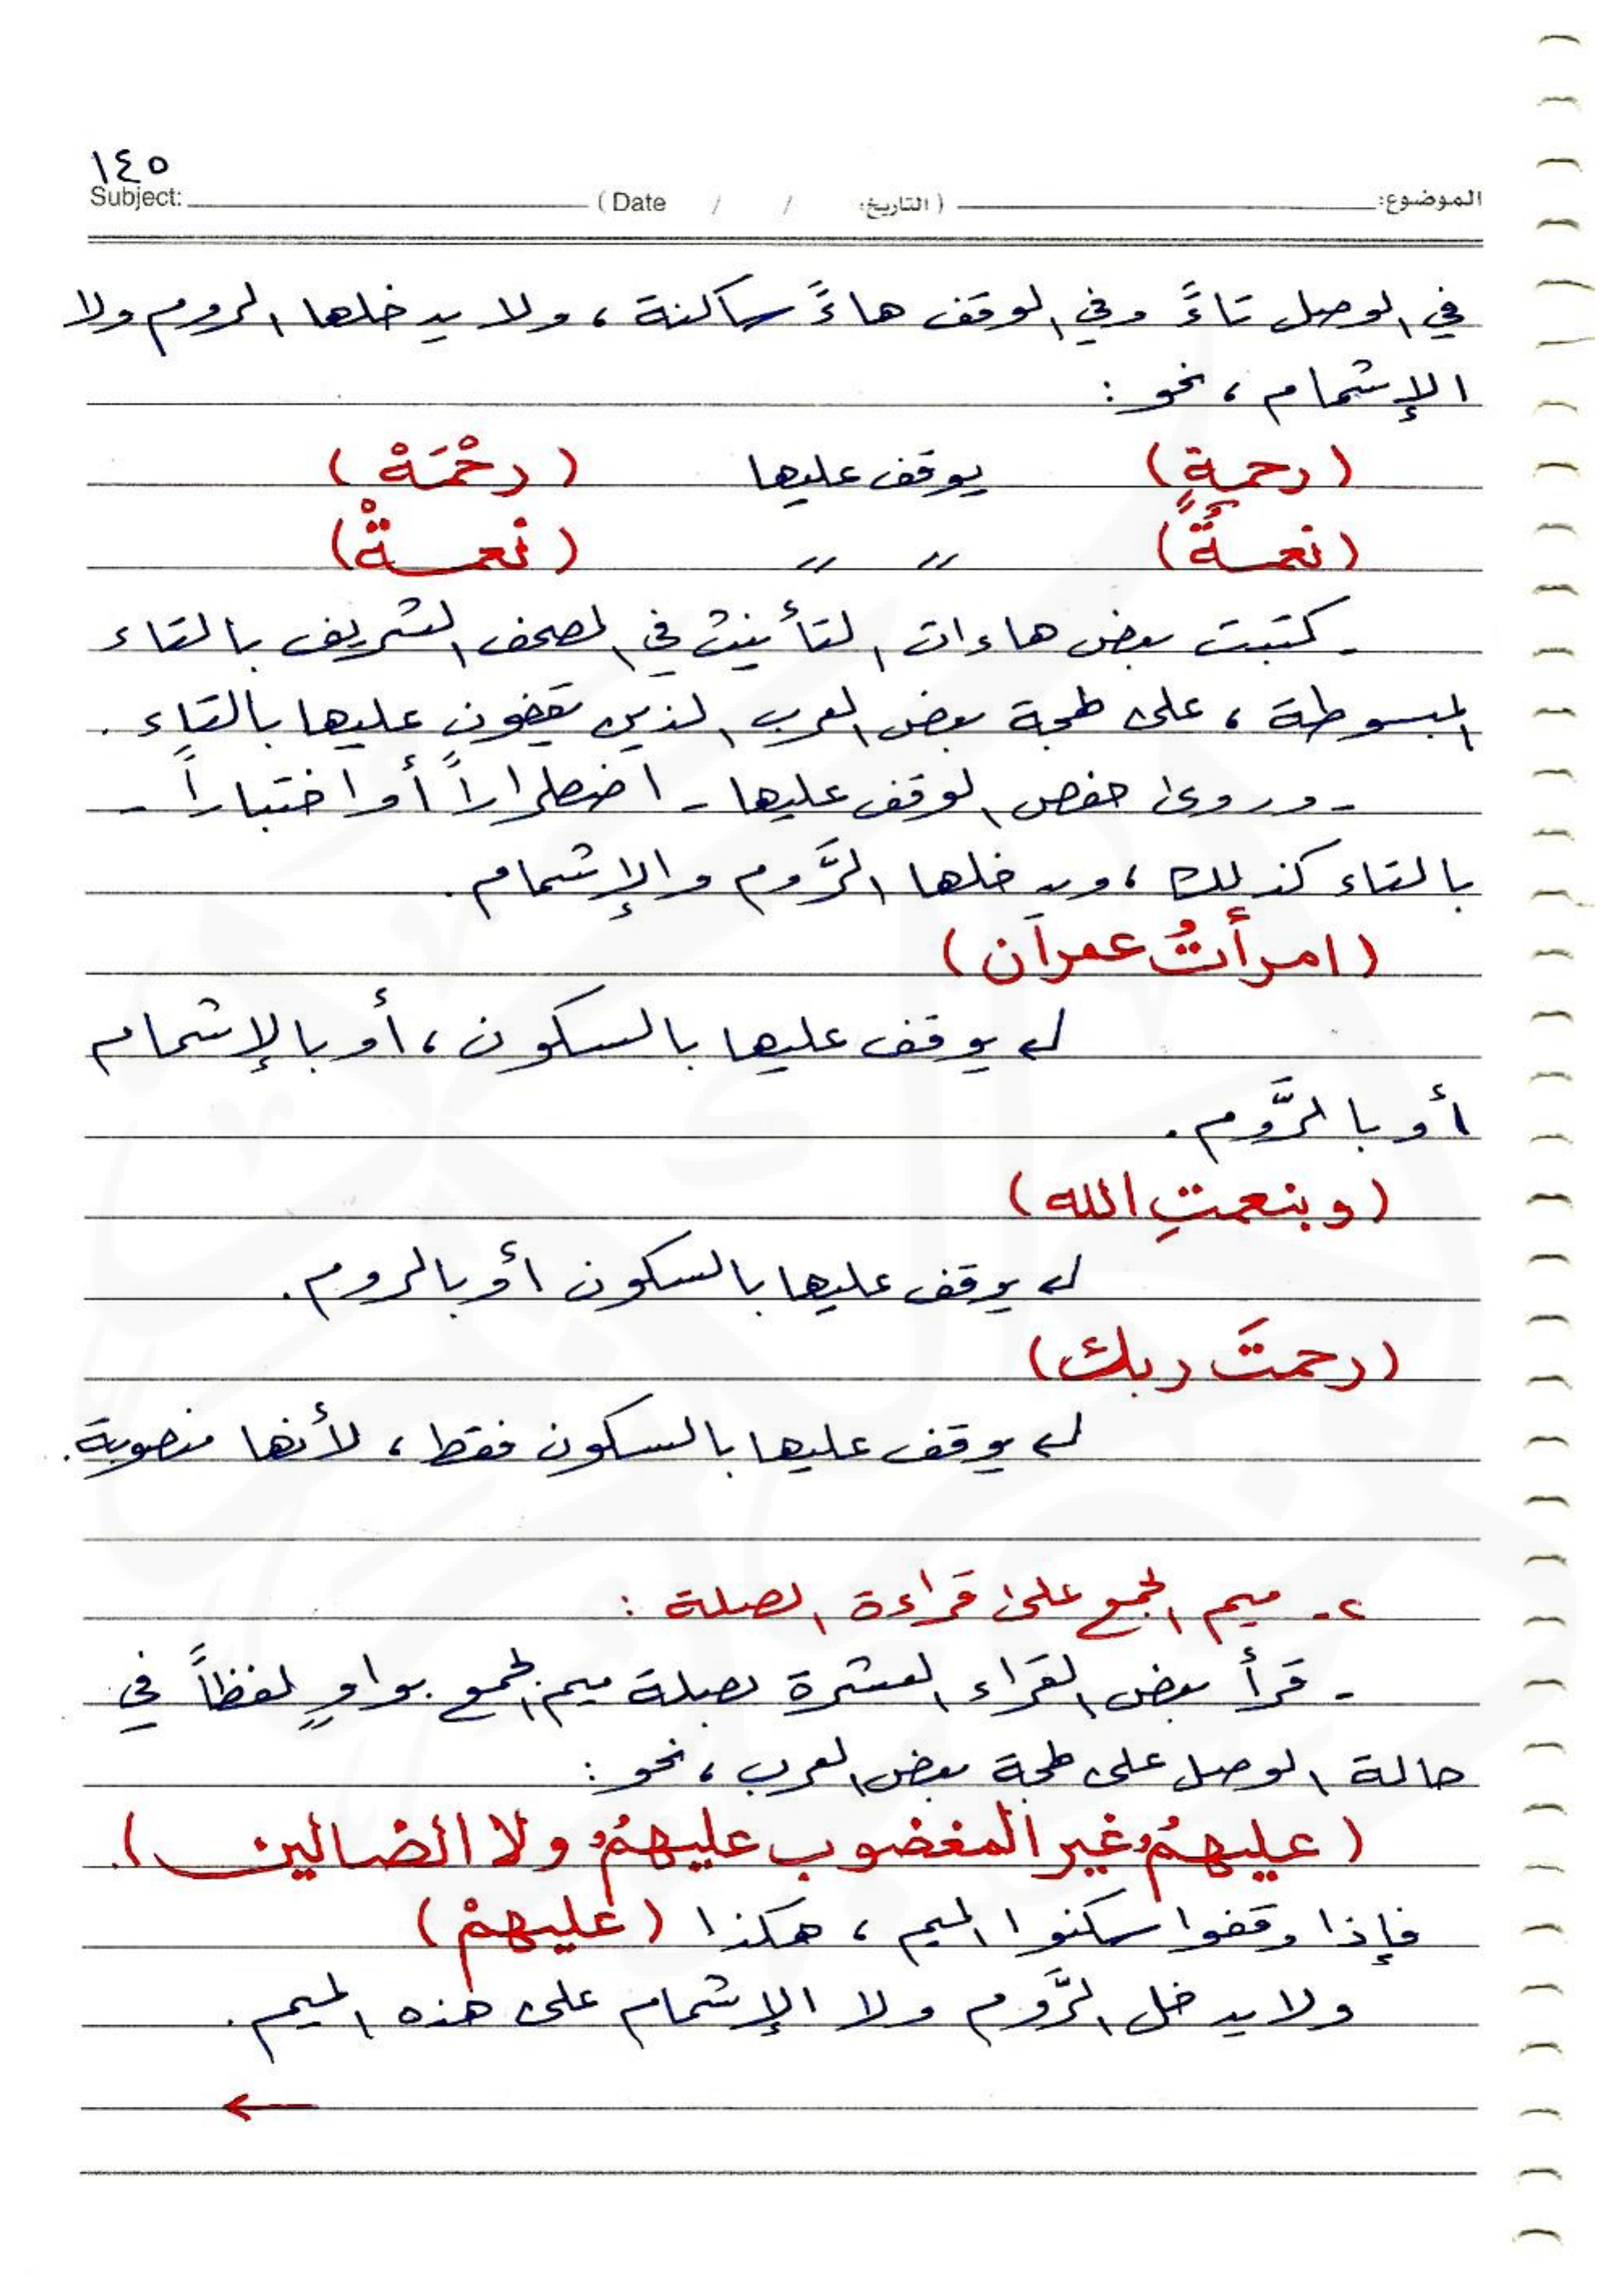 ١٤٥
Subject: (Date / / التاريخ) الموضوع:
في الوصل تاءً وفي الوقف هاءً ساكنة ، ولا يدخلها الروم ولا
الإشمام ، نحو :
(رحمةٍ) يوقف عليها (رحْمَهْ)
(نعمةً) // // (نعمهْ)
- كتبت بعض هاءات التأنيث في المصحف الشريف بالتاء
المبسوطة ، على لهجة بعض العرب الذين يقفون عليها بالتاء .
- وروى حفص الوقف عليها - اضطراراً أو اختباراً -
بالتاء كذلك ، ويدخلها الرَّوم والإشمام .
(امرأتُ عمران)
يوقف عليها بالسكون ، أو بالإشمام
أو بالرَّوم .
(وبنعمتِ الله)
يوقف عليها بالسكون أو بالروم .
(رحمتَ ربك)
يوقف عليها بالسكون فقط ، لأنها منصوبة .
٢- ميم الجمع على قراءة الصلة :
- قرأ بعض القراء العشرة بصلة ميم الجمع بواوٍ لفظاً في
حالة الوصل على لهجة بعض العرب ، نحو :
(عليهمُۥ غير المغضوب عليهمُۥ ولا الضالين) .
فإذا وقفوا سكنوا الميم ، هكذا (عليهمْ)
ولا يدخل الرَّوم ولا الإشمام على هذه الميم .
←